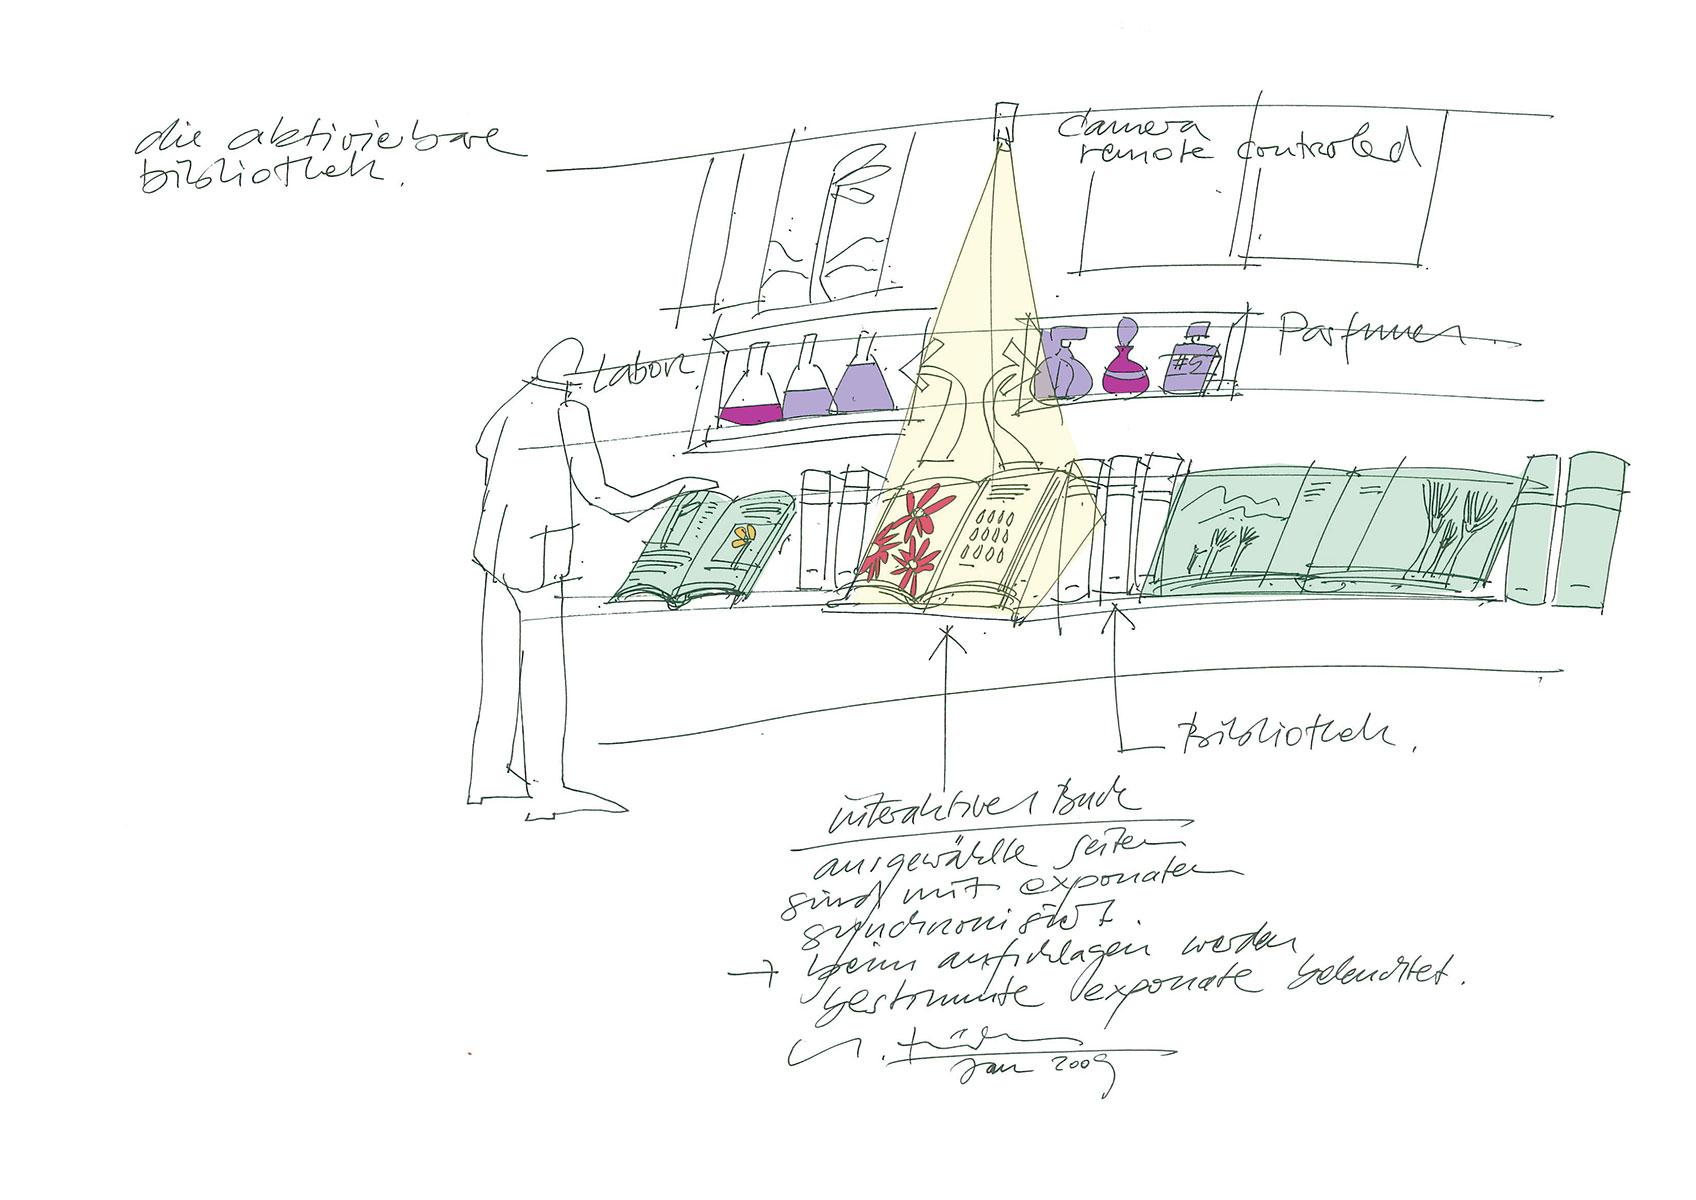 die aktivierbare
bibliothek.
Camera
remote controled
Labor
Parfumer
#5
Bibliothek.
interaktives Buch
ausgewählte seiten
sind mit exponaten
synchronisiert.
→ beim aufschlagen werden
bestimmte exponate beleuchtet.
Jan 2009